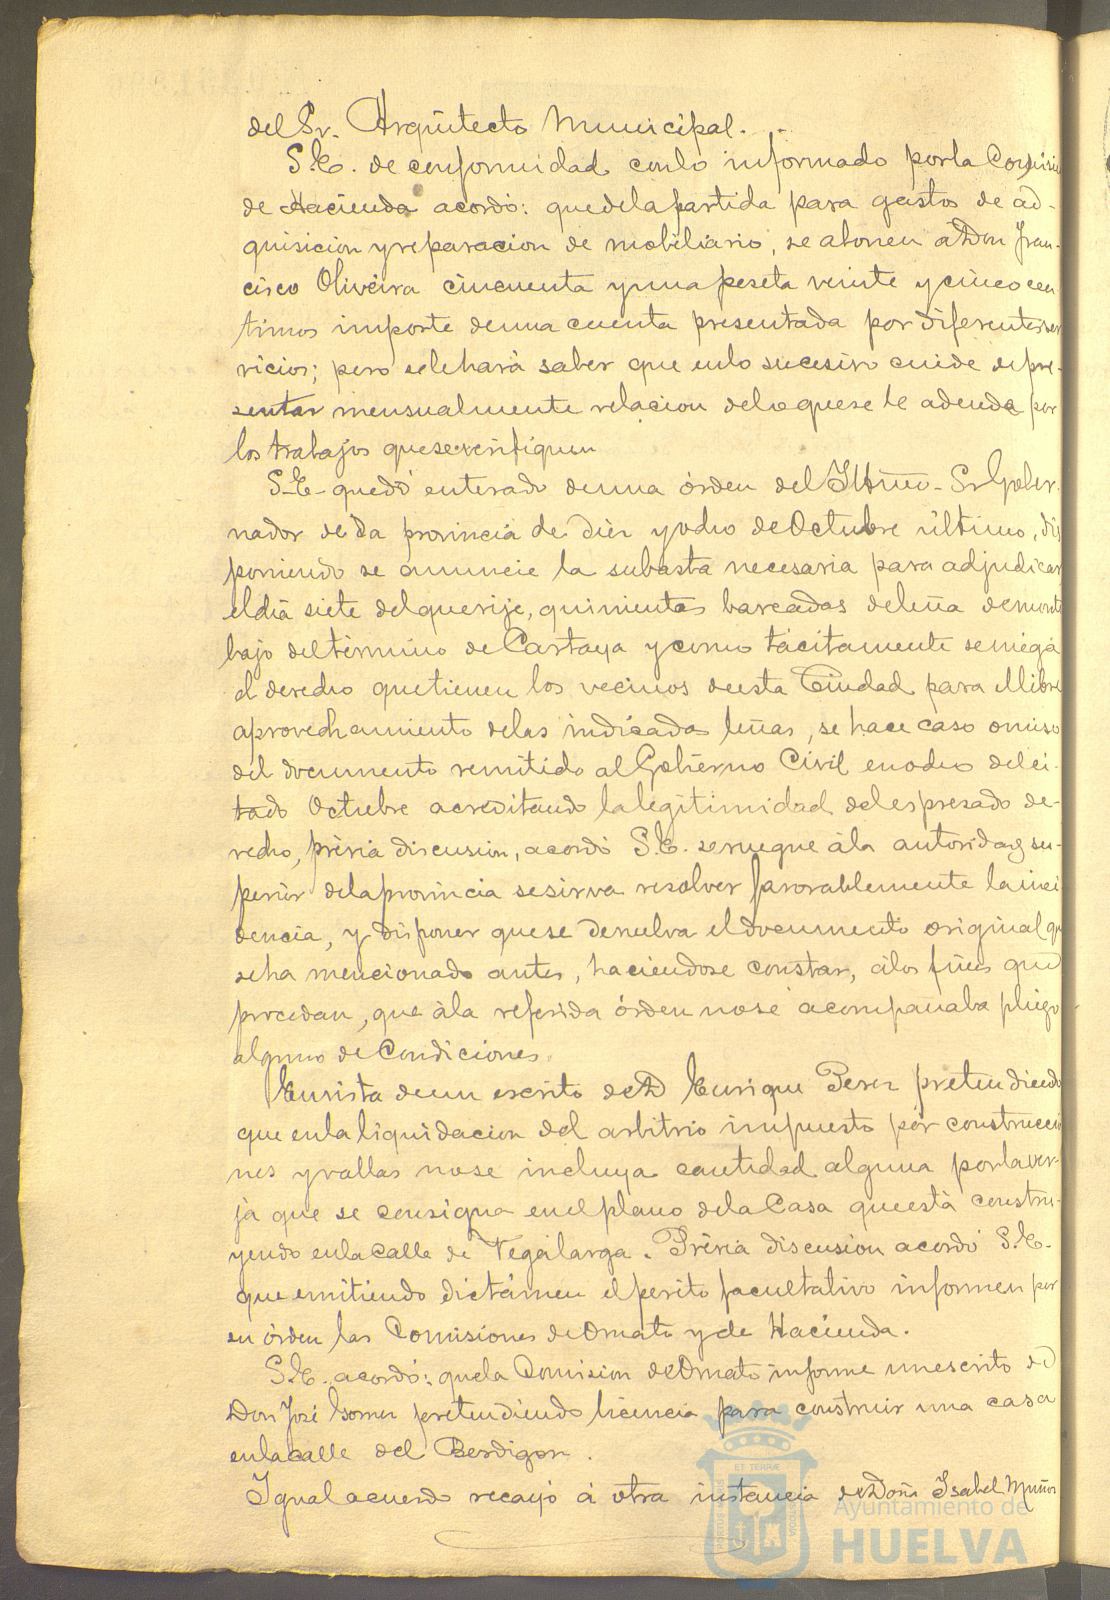 del Sr. Arquitecto Municipal.
S.E. de conformidad con lo informado por la Comisión
de Hacienda acordó: que de la partida para gastos de ad-
quisicion y reparacion de mobiliario, se abonen á Don Fran-
cisco Oliveira cincuenta y una peseta veinte y cinco cen
timos importe de una cuenta presentada por diferentes ser
vicios; pero se le hará saber que en lo sucesivo cuide de pre-
sentar mensualmente relacion de lo que se le adeude por
los trabajos que se verifiquen
S.E. quedó enterado de una órden del Iltmo. Sr Gober-
nador de la provincia de diez y ocho de Octubre último, dis
poniendo se anuncie la subasta necesaria para adjudicar
el dia siete del que rije, quinientas barcadas de leña de monte
bajo del término de Cartaya y como tácitamente se niega
el derecho que tienen los vecinos de esta Ciudad para el libre
aprovechamiento de las indicadas leñas, se hace caso omiso
del documento remitido al Gobierno Civil en ocho del ci-
tado Octubre acreditando la legitimidad del espresado de-
recho, prévia discusion, acordó S.E. se ruegue á la autoridad su-
perior de la provincia se sirva resolver favorablemente la inci
dencia, y disponer que se devuelva el documento original que
se ha mencionado antes, haciendose constar, á los fines que
procedan, que á la referida órden no se acompañaba pliego
alguno de Condiciones.
En vista de un escrito de D Enrique Perez pretendiendo
que en la liquidacion del arbitrio impuesto por construccio
nes y vallas no se incluya cantidad alguna por la ver-
ja que se consigna en el plano de la Casa que está constru-
yendo en la Calle de Vegalarga. Prévia discusion acordó S.E.
que emitiendo dictámen el perito facultativo informen por
su órden las Comisiones de Ornato y de Hacienda.
S.E. acordó: que la Comision de Ornato informe un escrito de
Don José Gomez pretendiendo licencia para construir una casa
en la calle del Berdigon.
Igual acuerdo recayó á otra instancia de Doña Isabel Muñoz
Ayuntamiento de
HUELVA